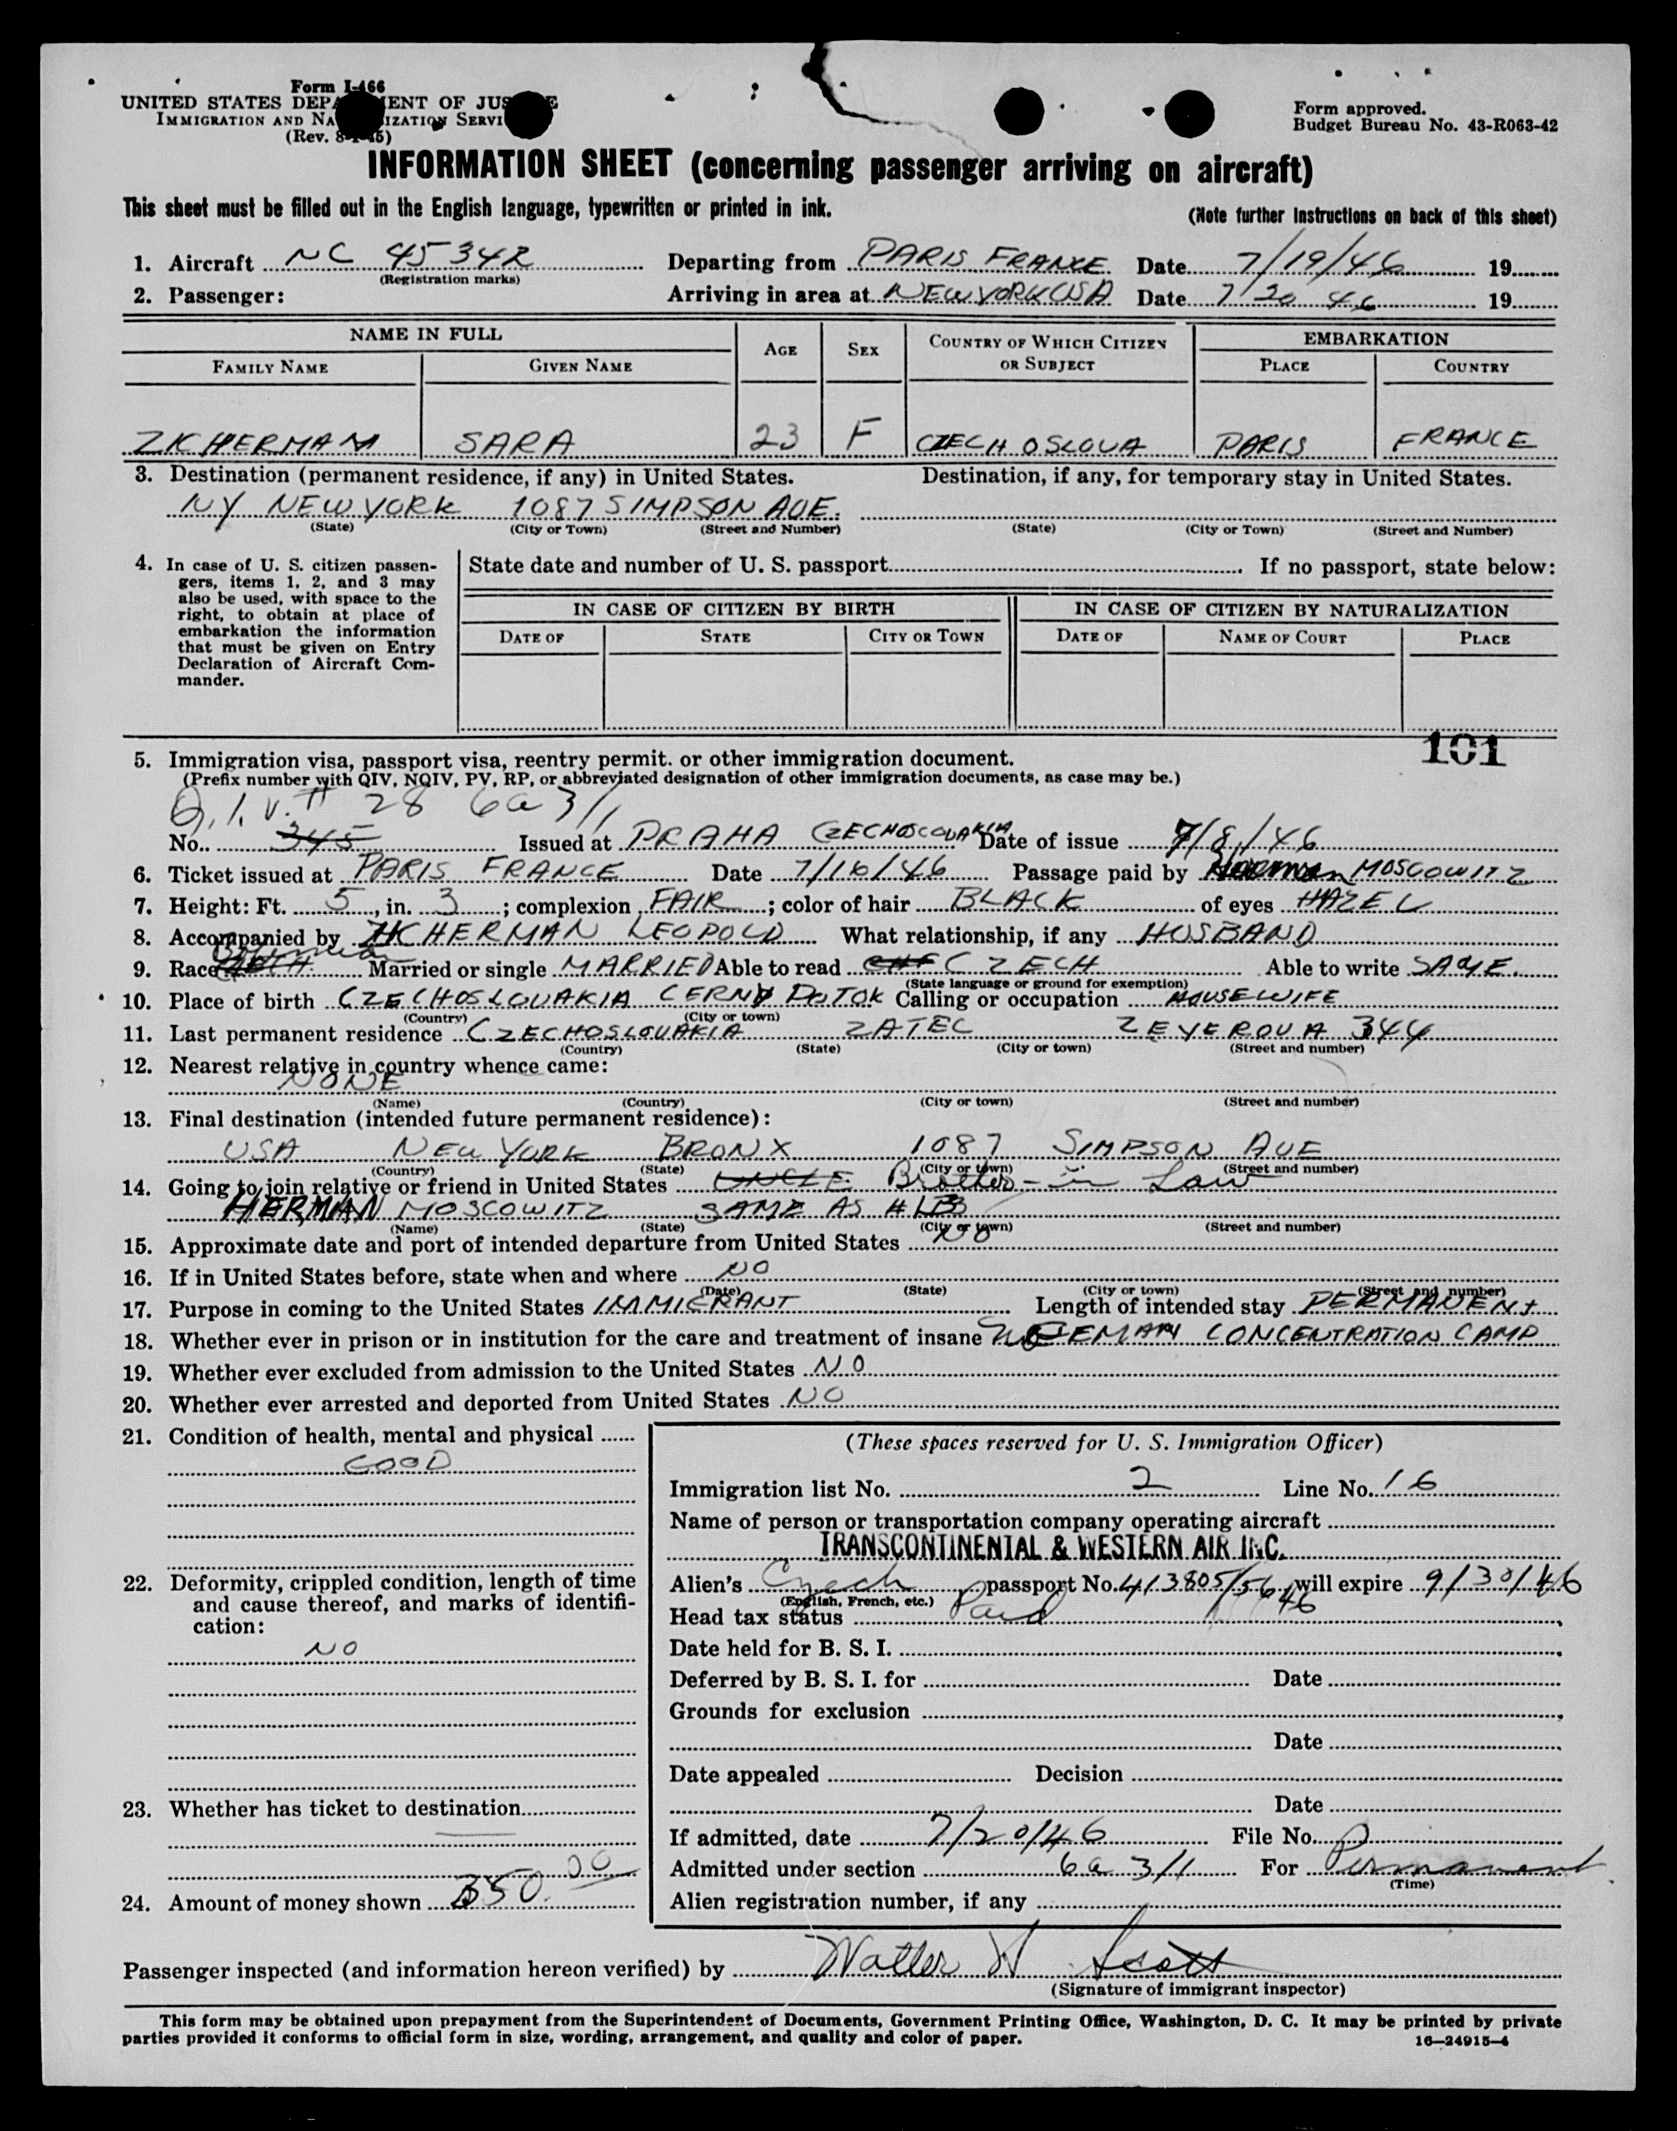 Form I-466
UNITED STATES DEPARTMENT OF JUSTICE
IMMIGRATION AND NATURALIZATION SERVICE
(Rev. 8-1-45)
Form approved.
Budget Bureau No. 43-R063-42
INFORMATION SHEET (concerning passenger arriving on aircraft)
This sheet must be filled out in the English language, typewritten or printed in ink.
(Note further instructions on back of this sheet)
1. Aircraft NC 45342 Departing from PARIS FRANCE Date 7/19/46 19
(Registration marks)
2. Passenger: Arriving in area at NEW YORK USA Date 7 20 46 19
NAME IN FULL AGE SEX COUNTRY OF WHICH CITIZEN OR SUBJECT EMBARKATION
FAMILY NAME GIVEN NAME PLACE COUNTRY
ZICHERMAN SARA 23 F CZECHOSLOVA PARIS FRANCE
3. Destination (permanent residence, if any) in United States. Destination, if any, for temporary stay in United States.
NY NEW YORK 1087 SIMPSON AVE.
(State) (City or Town) (Street and Number) (State) (City or Town) (Street and Number)
4. In case of U. S. citizen passengers, items 1, 2, and 3 may
also be used, with space to the
right, to obtain at place of
embarkation the information
that must be given on Entry
Declaration of Aircraft Commander.
State date and number of U. S. passport If no passport, state below:
IN CASE OF CITIZEN BY BIRTH IN CASE OF CITIZEN BY NATURALIZATION
DATE OF STATE CITY OR TOWN DATE OF NAME OF COURT PLACE
101
5. Immigration visa, passport visa, reentry permit. or other immigration document.
(Prefix number with QIV, NQIV, PV, RP, or abbreviated designation of other immigration documents, as case may be.)
Q.I.V. # 28 6a 3/1
No. 345 Issued at PRAHA CZECHOSLOVAKIA Date of issue 7/8/46
6. Ticket issued at PARIS FRANCE Date 7/16/46 Passage paid by Herman MOSCOWITZ
7. Height: Ft. 5, in. 3; complexion FAIR; color of hair BLACK of eyes HAZEL
8. Accompanied by ZICHERMAN LEOPOLD What relationship, if any HUSBAND
9. Race Married or single MARRIED Able to read CZECH Able to write SAME.
(State language or ground for exemption)
10. Place of birth CZECHOSLOVAKIA CERNY POTOK Calling or occupation HOUSEWIFE
(Country) (City or town)
11. Last permanent residence CZECHOSLOVAKIA ZATEC ZEYEROVA 344
(Country) (State) (City or town) (Street and number)
12. Nearest relative in country whence came:
NONE
(Name) (Country) (City or town) (Street and number)
13. Final destination (intended future permanent residence):
USA NEW YORK BRONX 1087 SIMPSON AVE
(Country) (State) (City or town) (Street and number)
14. Going to join relative or friend in United States UNCLE Brother-in Law
HERMAN MOSCOWITZ SAME AS #13
(Name) (State) (City or town) (Street and number)
15. Approximate date and port of intended departure from United States NO
16. If in United States before, state when and where NO
(Date) (State) (City or town) (Street and number)
17. Purpose in coming to the United States IMMIGRANT Length of intended stay PERMANENT
18. Whether ever in prison or in institution for the care and treatment of insane GERMAN CONCENTRATION CAMP
19. Whether ever excluded from admission to the United States NO
20. Whether ever arrested and deported from United States NO
21. Condition of health, mental and physical
GOOD
22. Deformity, crippled condition, length of time
and cause thereof, and marks of identification:
NO
23. Whether has ticket to destination
24. Amount of money shown $50.00
(These spaces reserved for U. S. Immigration Officer)
Immigration list No. 2 Line No. 16
Name of person or transportation company operating aircraft
TRANSCONTINENTAL & WESTERN AIR INC.
Alien's Czech passport No. 413805/56/46, will expire 9/30/46
(English, French, etc.)
Head tax status Paid
Date held for B. S. I.
Deferred by B. S. I. for Date
Grounds for exclusion
Date
Date appealed Decision
Date
If admitted, date 7/20/46 File No.
Admitted under section 6a 3/1 For Permanent
(Time)
Alien registration number, if any
Passenger inspected (and information hereon verified) by Walter W Scott
(Signature of immigrant inspector)
This form may be obtained upon prepayment from the Superintendent of Documents, Government Printing Office, Washington, D. C. It may be printed by private
parties provided it conforms to official form in size, wording, arrangement, and quality and color of paper.
16—24915-4